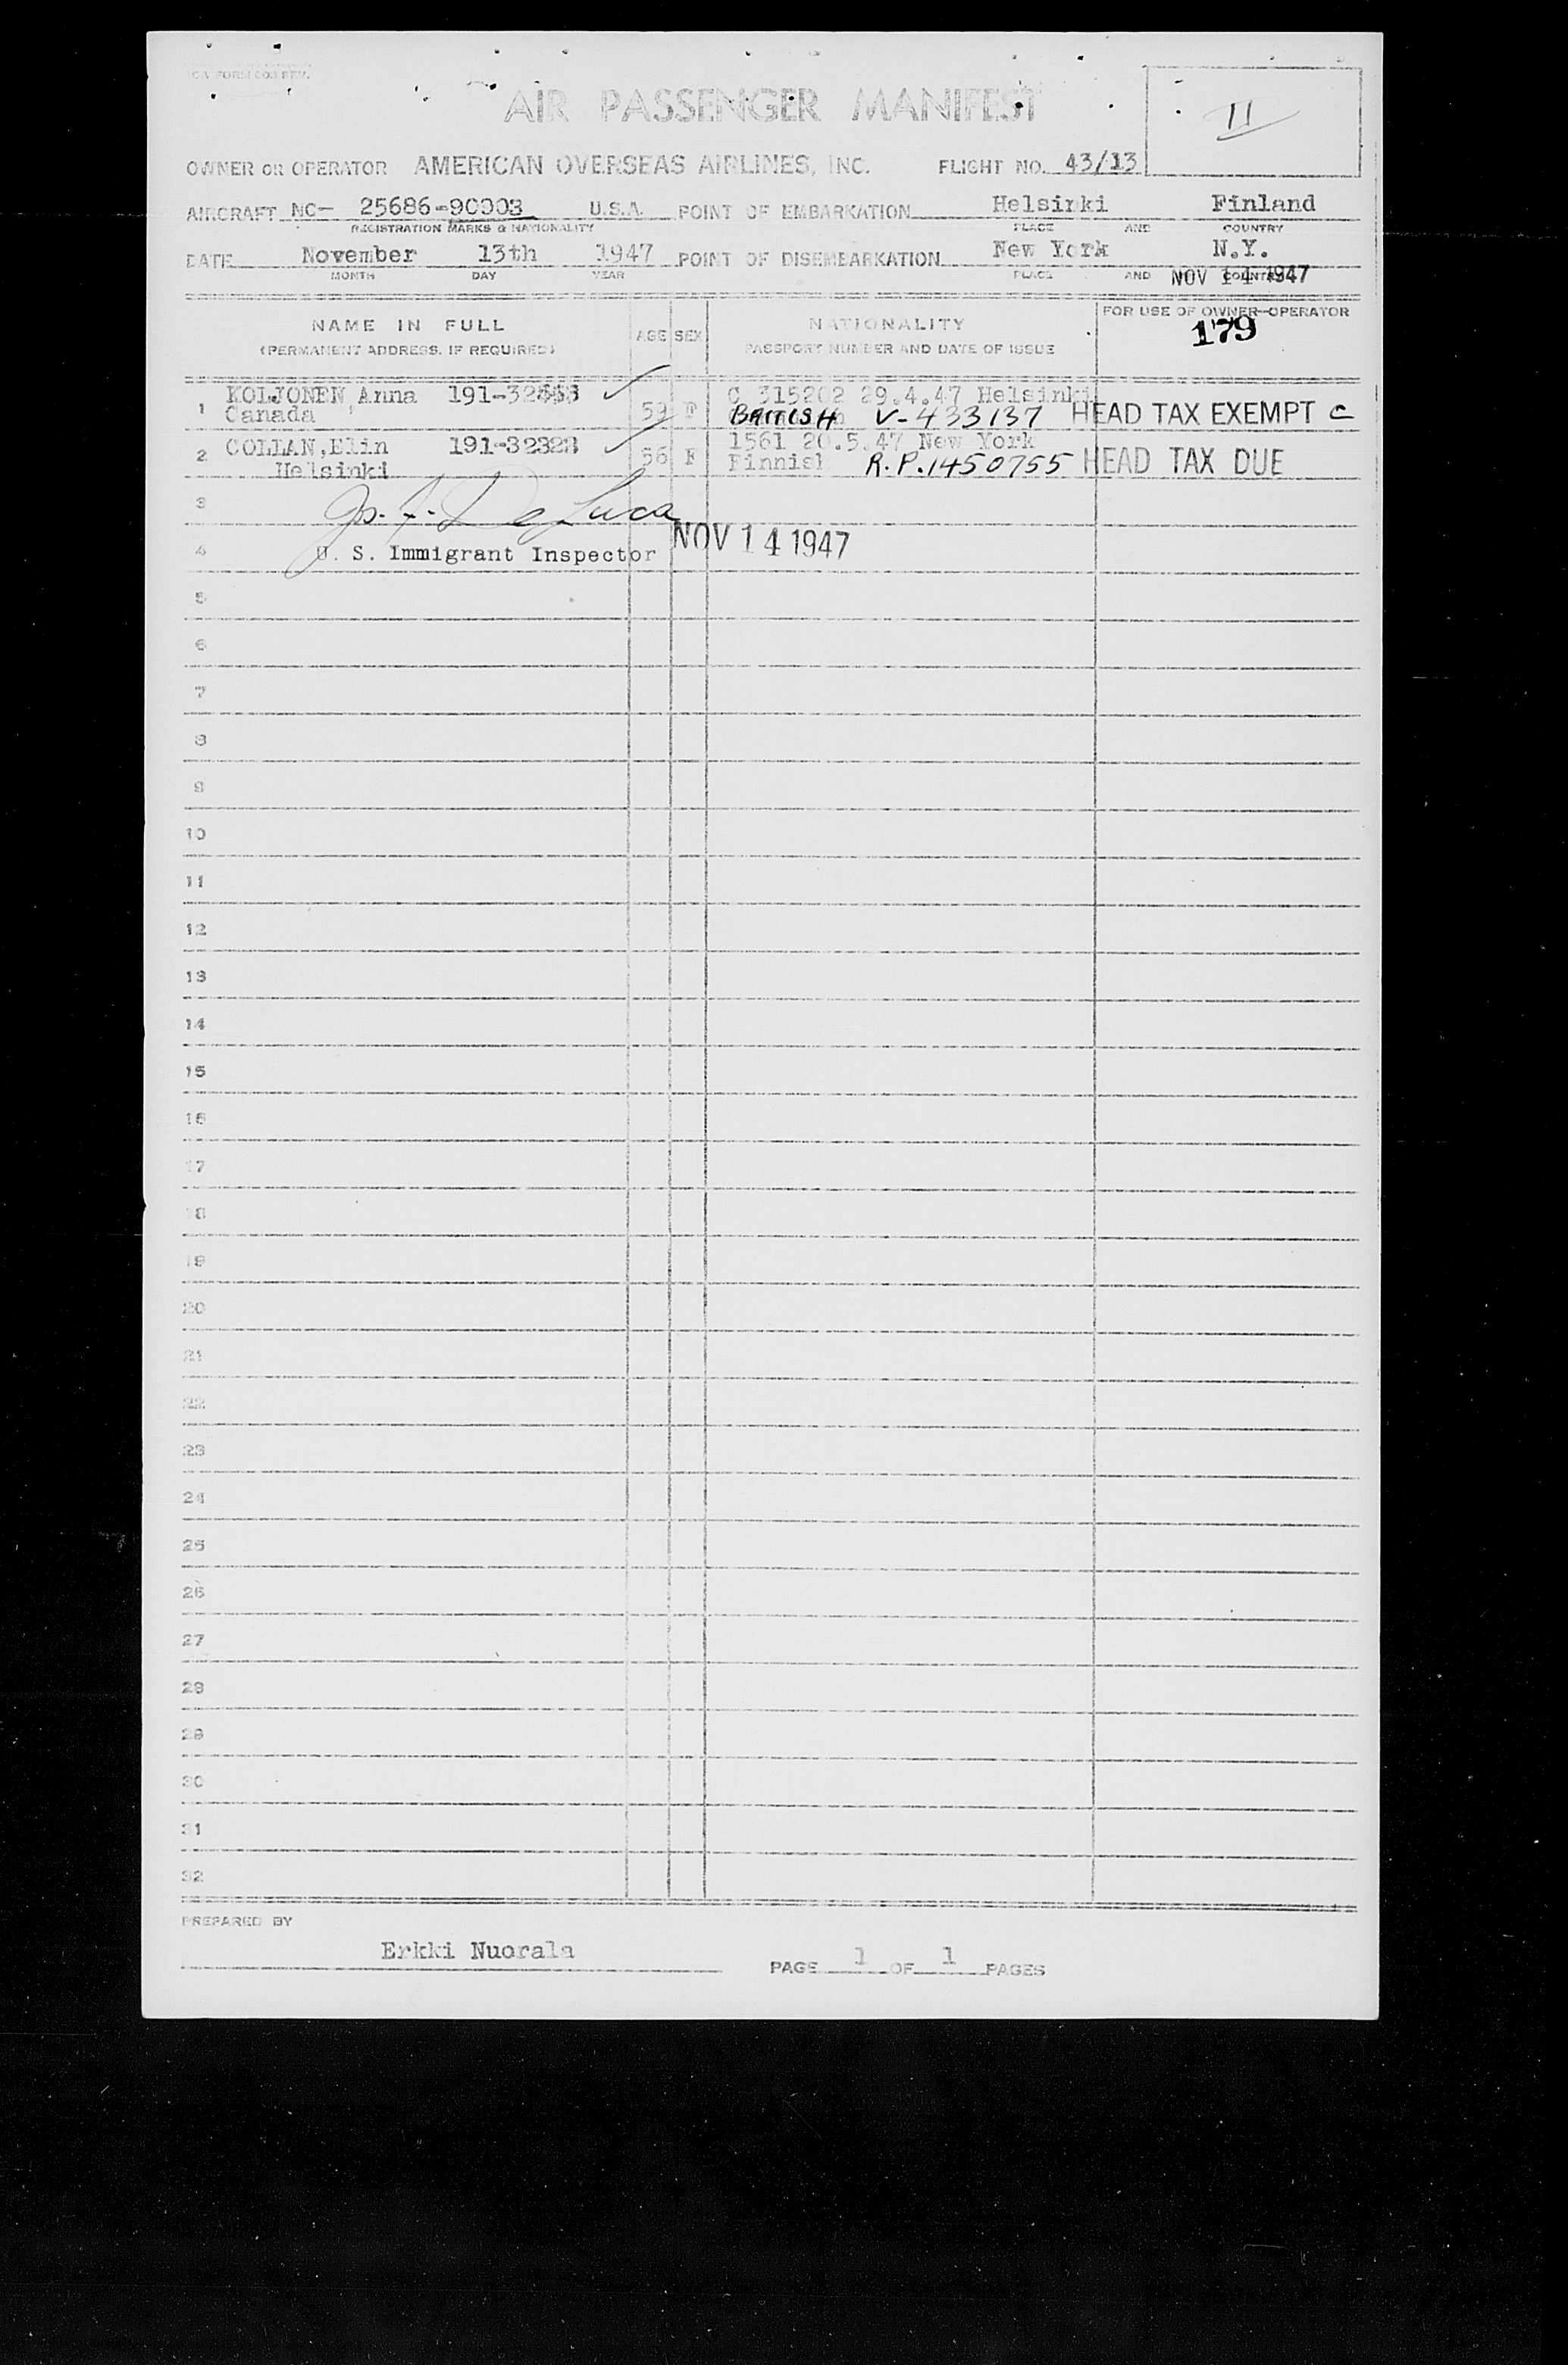 AIR PASSENGER MANIFEST
II
OWNER OR OPERATOR AMERICAN OVERSEAS AIRLINES, INC. FLIGHT NO. 43/13
AIRCRAFT NC- 25686-90903 U.S.A. POINT OF EMBARKATION Helsinki Finland
REGISTRATION MARKS & NATIONALITY PLACE AND COUNTRY
DATE November 13th 1947 POINT OF DISEMBARKATION New York N.Y.
MONTH DAY YEAR PLACE AND COUNTRY
NOV 14 1947
NAME IN FULL AGE SEX NATIONALITY FOR USE OF OWNER-OPERATOR
(PERMANENT ADDRESS, IF REQUIRED) PASSPORT NUMBER AND DATE OF ISSUE 179
1 KOLJONEN Anna 59 F C 315202 29.4.47 Helsinki
Canada BRITISH V-433137 HEAD TAX EXEMPT C
2 COLLAN,Elin 191-32323 56 F 1561 20.5.47 New York
Helsinki Finnish R.P.1450755 HEAD TAX DUE
3 Jos. F. De Luca
4 U. S. Immigrant Inspector NOV 14 1947
5
6
7
8
9
10
11
12
13
14
15
16
17
18
19
20
21
22
23
24
25
26
27
28
29
30
31
32
PREPARED BY
Erkki Nuorala
PAGE 1 OF 1 PAGES